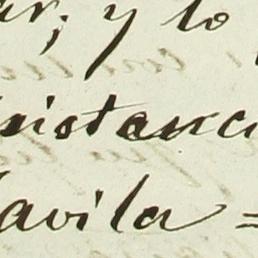 ar; y lo
nistanci
avila =